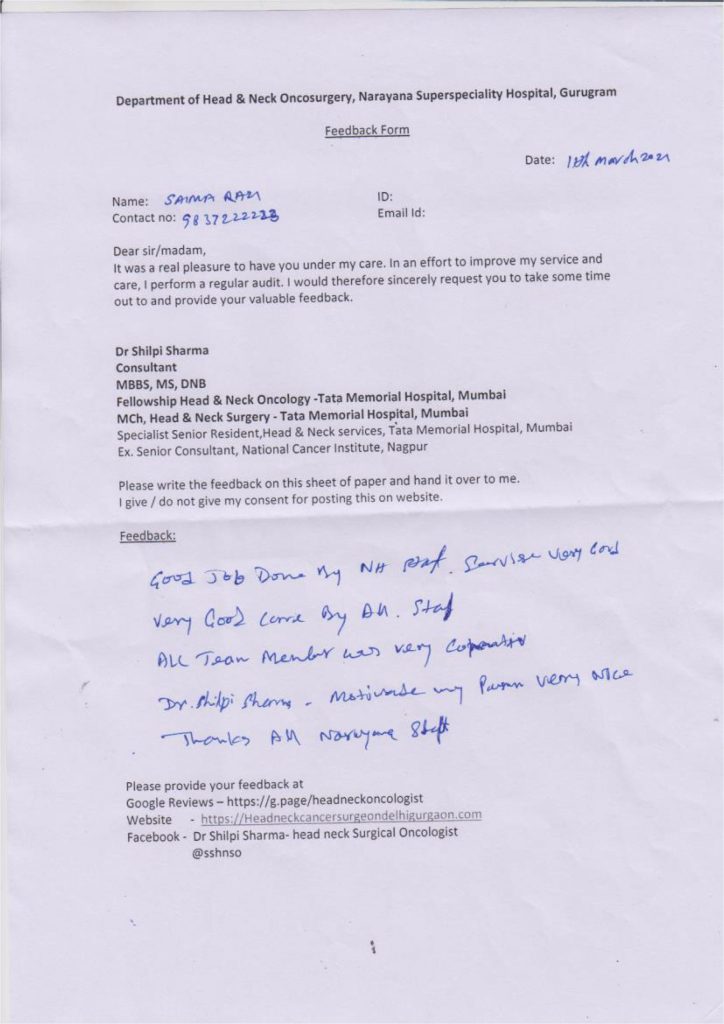 Department of Head & Neck Oncosurgery, Narayana Superspeciality Hospital, Gurugram
Feedback Form
Date: March 2021
Name: SAIMA
ID:
Contact no:
Email Id:
Dear sir/madam,
It was a real pleasure to have you under my care. In an effort to improve my service and
care, I perform a regular audit. I would therefore sincerely request you to take some time
out to and provide your valuable feedback.
Dr Shilpi Sharma
Consultant
MBBS, MS, DNB
Fellowship Head & Neck Oncology -Tata Memorial Hospital, Mumbai
MCh, Head & Neck Surgery - Tata Memorial Hospital, Mumbai
Specialist Senior Resident,Head & Neck services, Tata Memorial Hospital, Mumbai
Ex. Senior Consultant, National Cancer Institute, Nagpur
Please write the feedback on this sheet of paper and hand it over to me.
I give / do not give my consent for posting this on website.
Feedback:
Good Job Done By NH Staf. Service very Good
Very Good Care By All. Staf
ALL Team Member was very
Dr. Shilpi Sharma - my very Nice
Thanks All Narayana Staff
Please provide your feedback at
Google Reviews – https://g.page/headneckoncologist
Website - https://Headneckcancersurgeondelhigurgaon.com
Facebook - Dr Shilpi Sharma- head neck Surgical Oncologist
@sshnso